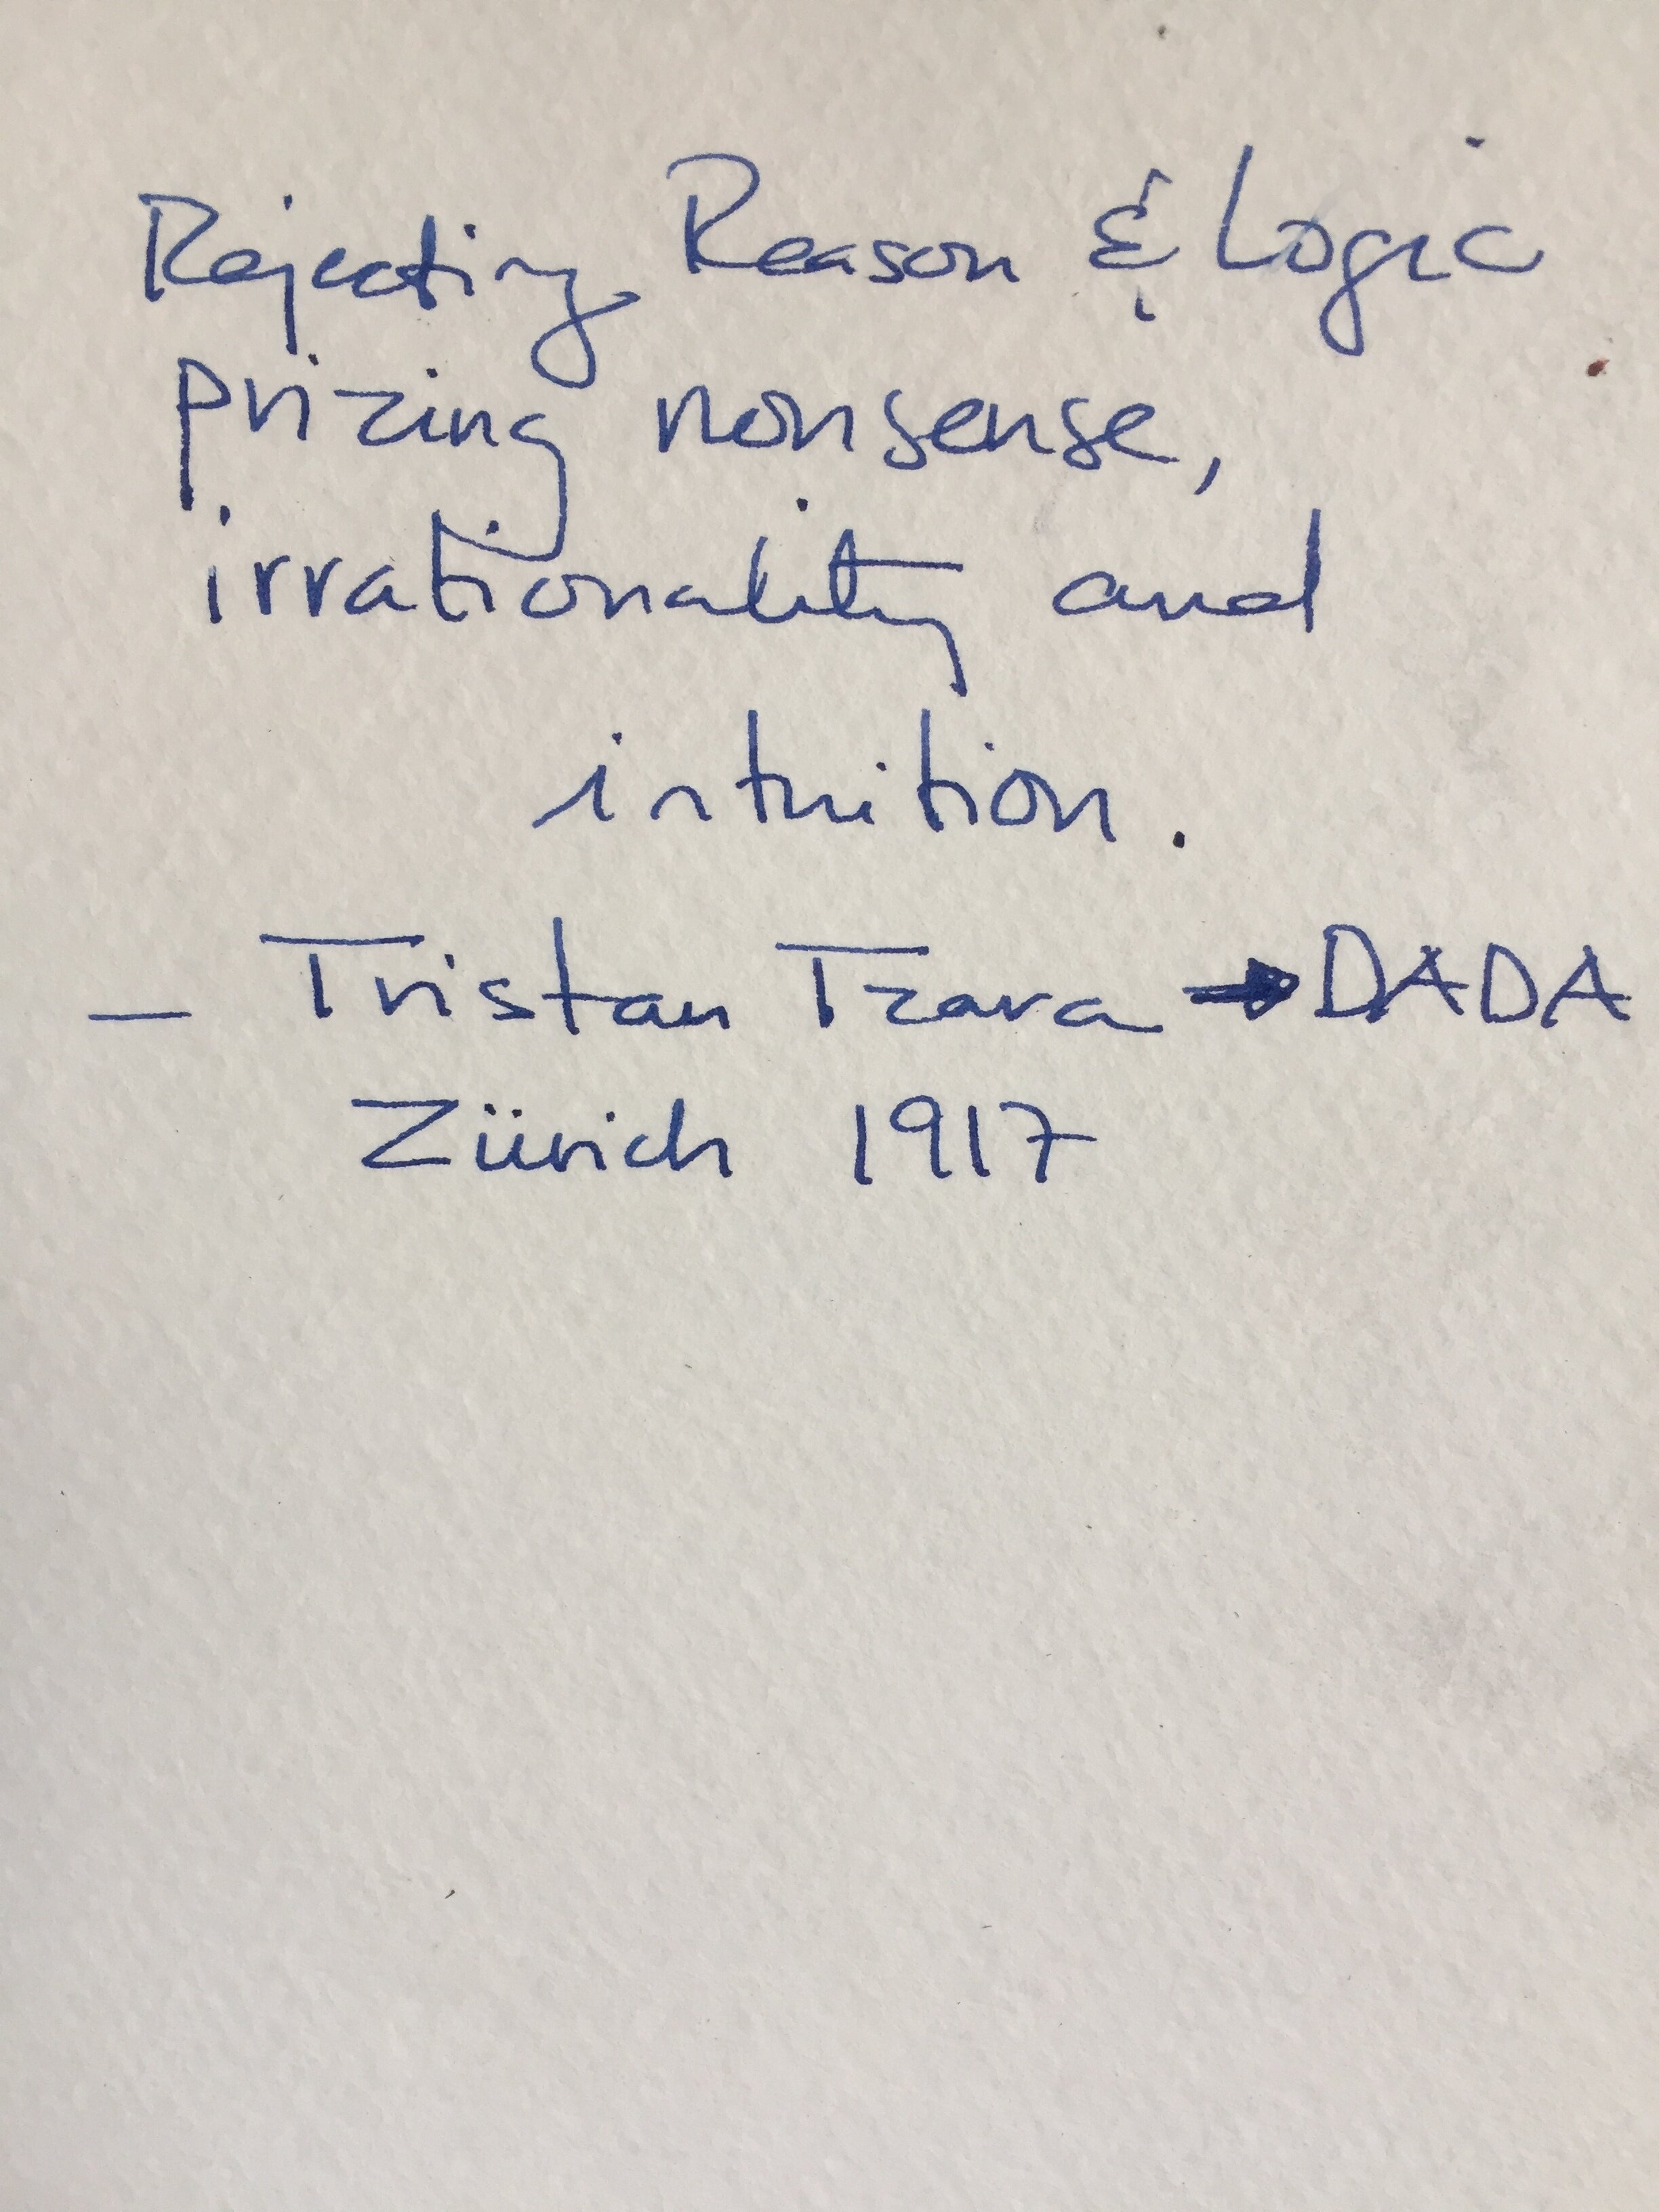 Rejecting Reason & Logic
prizing nonsense,
irrationality and
intuition.
— Tristan Tzara → DADA
Zürich 1917